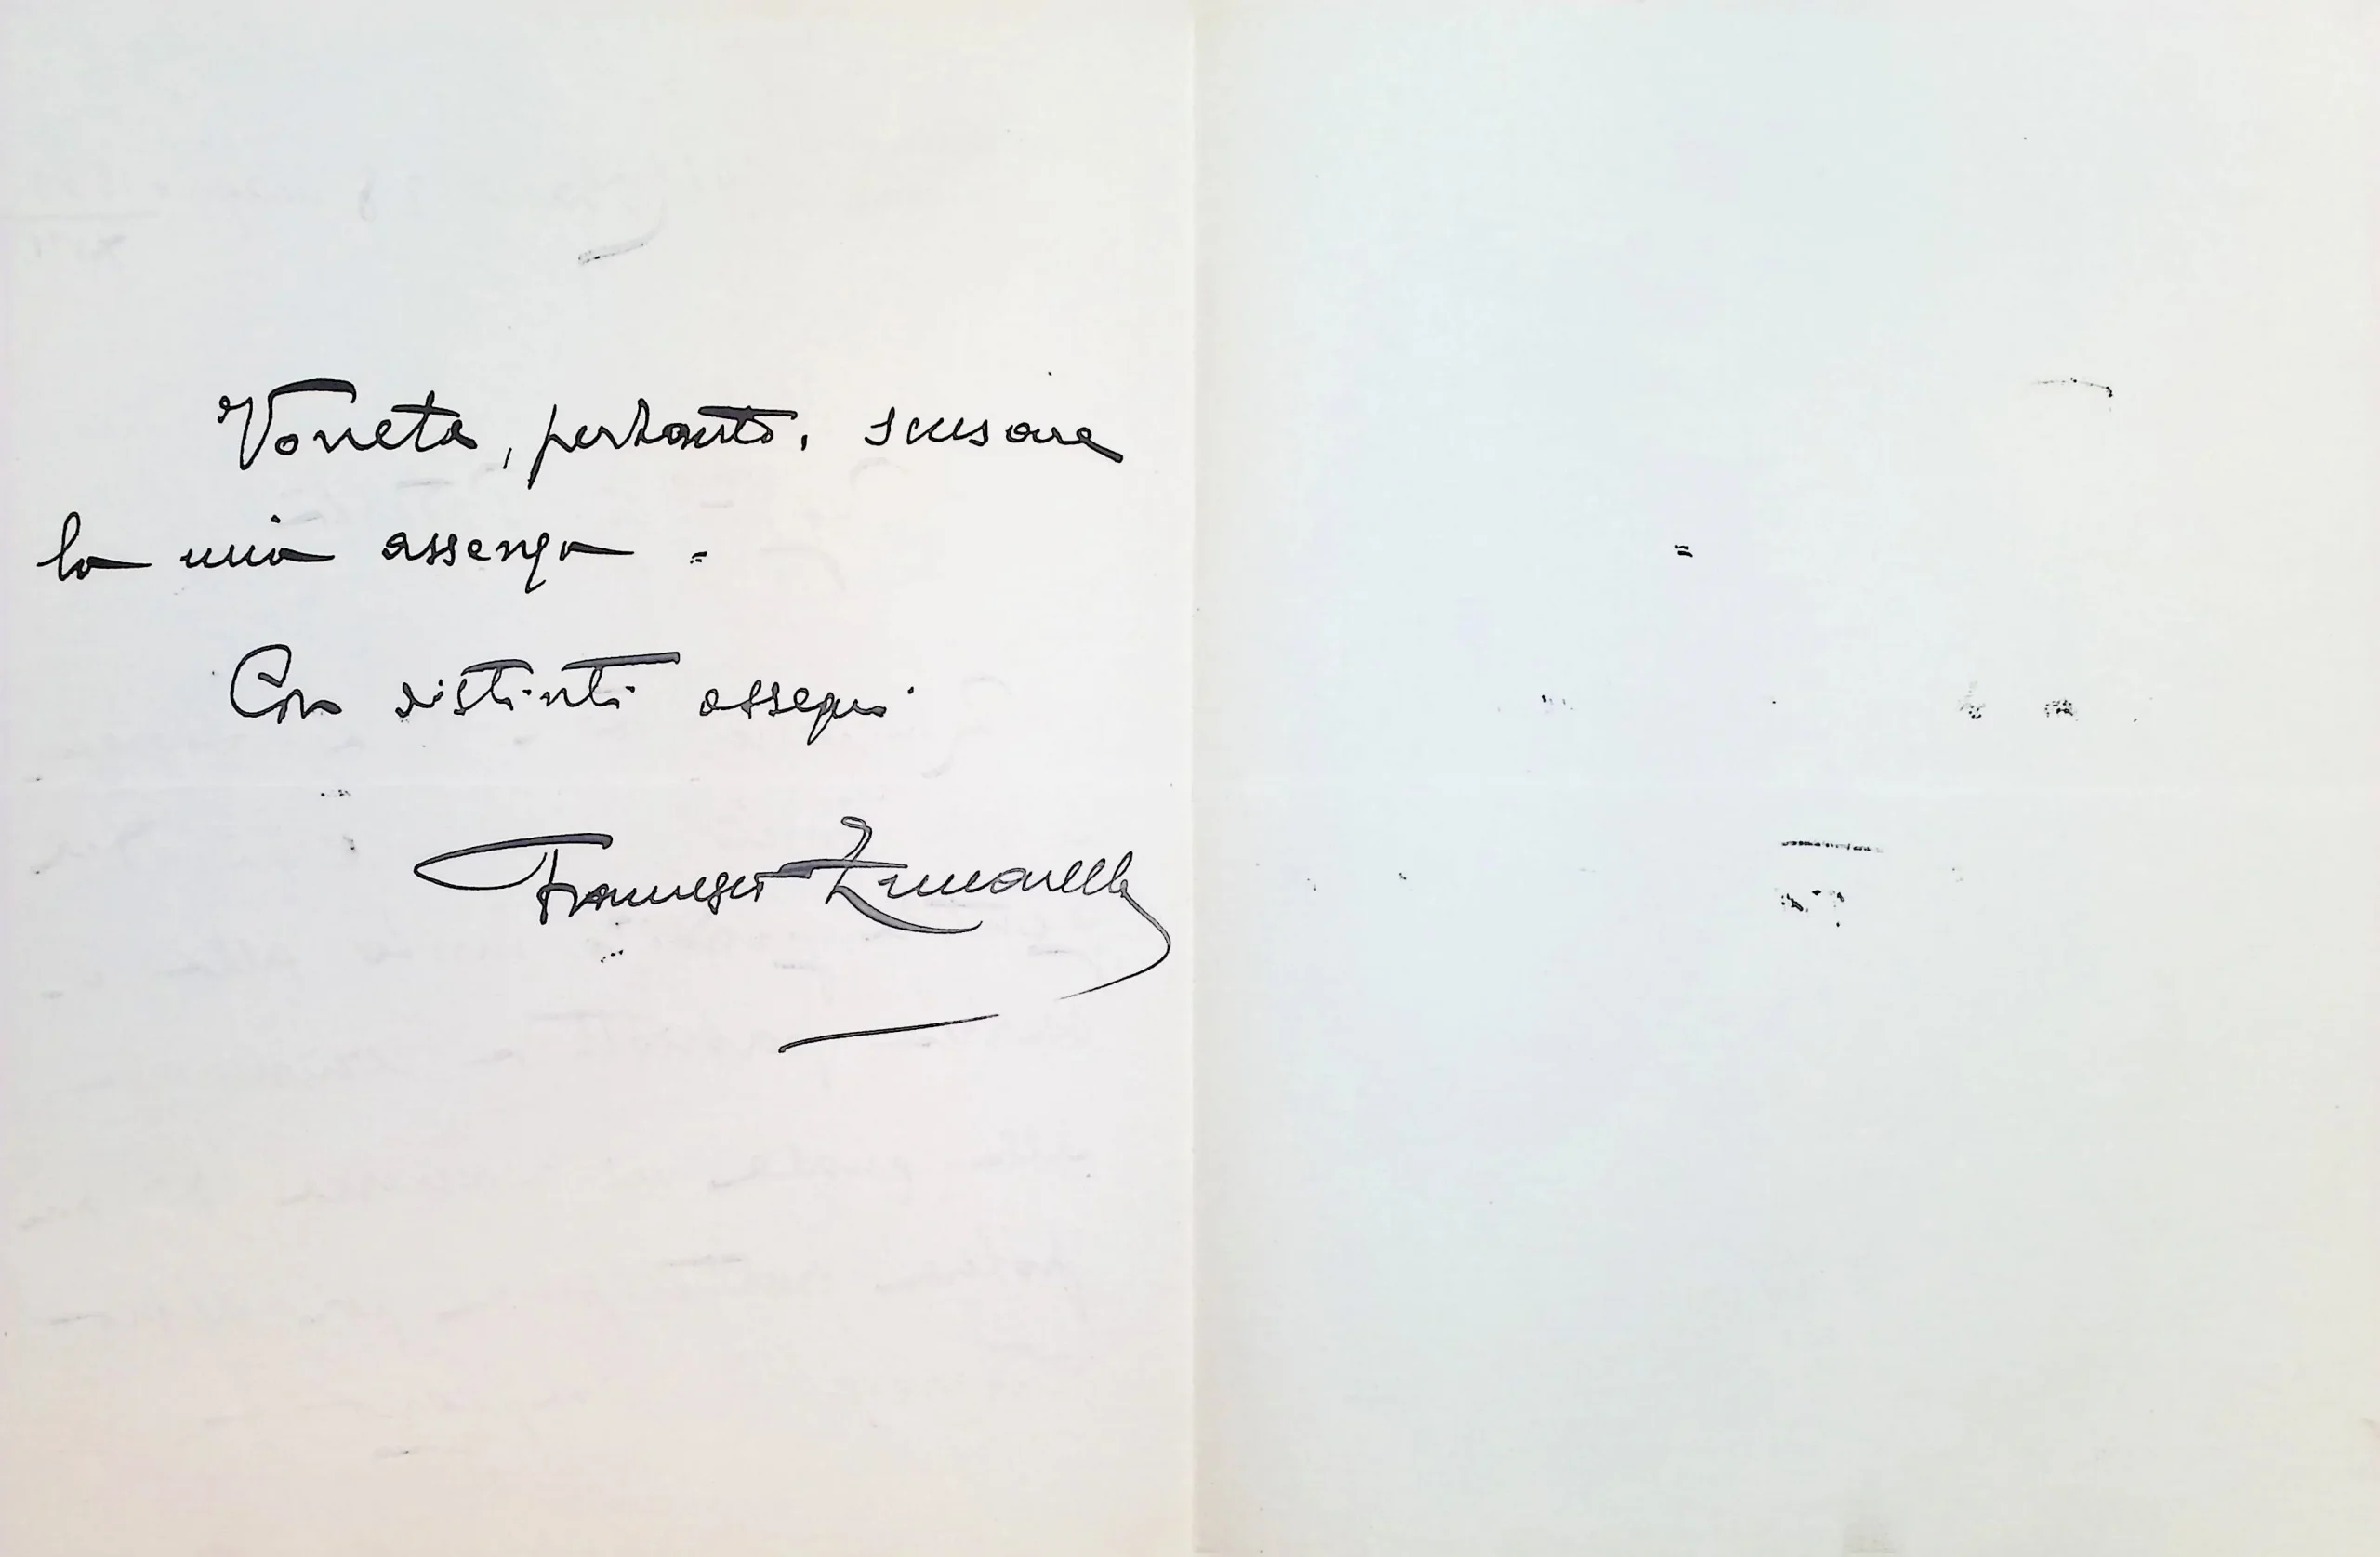 Vorrete, pertanto, scusare
la mia assenza =
Con distinti ossequi
Francesco